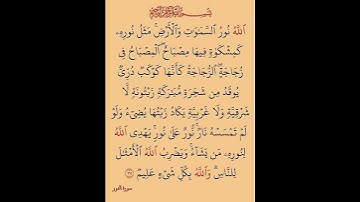 بِسْمِ اللَّهِ الرَّحْمَٰنِ الرَّحِيمِ
اللَّهُ نُورُ السَّمَٰوَٰتِ وَالْأَرْضِ ۚ مَثَلُ نُورِهِۦ
كَمِشْكَوٰةٍ فِيهَا مِصْبَاحٌ ۖ الْمِصْبَاحُ فِى
زُجَاجَةٍ ۖ الزُّجَاجَةُ كَأَنَّهَا كَوْكَبٌ دُرِّىٌّ
يُوقَدُ مِن شَجَرَةٍ مُّبَٰرَكَةٍ زَيْتُونَةٍ لَّا
شَرْقِيَّةٍ وَلَا غَرْبِيَّةٍ يَكَادُ زَيْتُهَا يُضِىٓءُ وَلَوْ
لَمْ تَمْسَسْهُ نَارٌ ۚ نُّورٌ عَلَىٰ نُورٍ ۗ يَهْدِى اللَّهُ
لِنُورِهِۦ مَن يَشَآءُ ۚ وَيَضْرِبُ اللَّهُ الْأَمْثَٰلَ
لِلنَّاسِ ۗ وَاللَّهُ بِكُلِّ شَىْءٍ عَلِيمٌ ٣٥
سورة النور